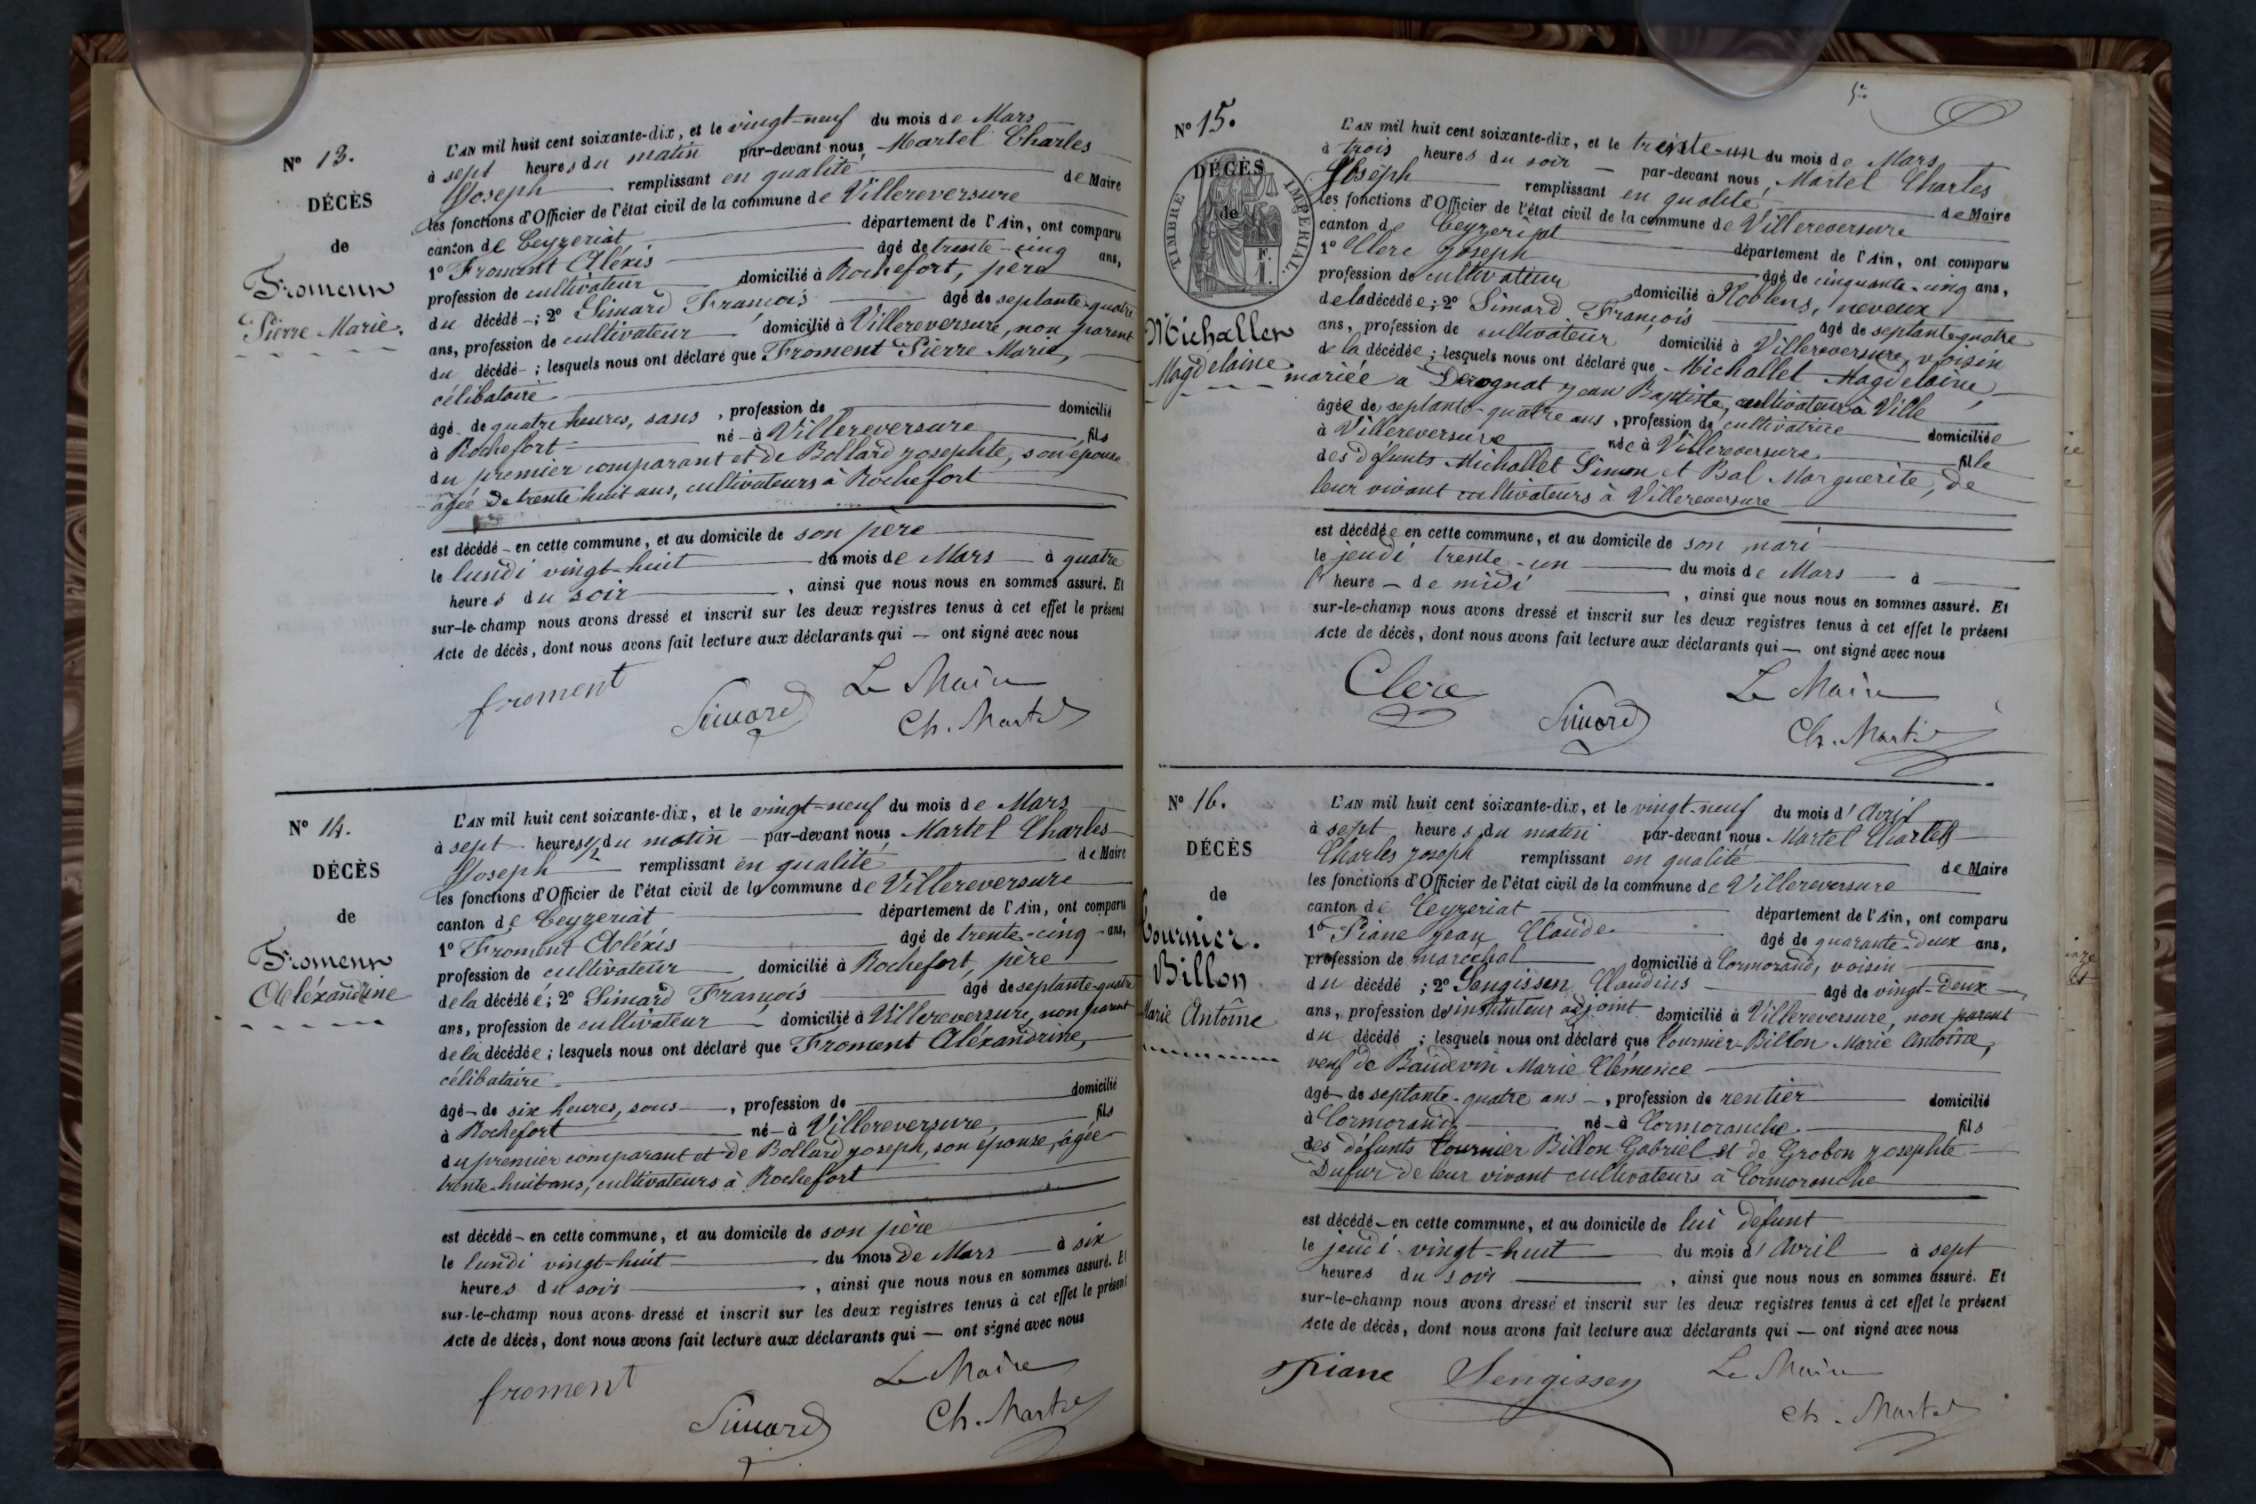 N° 13.
DÉCÈS
de
Froment
Pierre Marie.
L'AN mil huit cent soixante-dix, et le vingt-neuf du mois de Mars
à sept heures du matin par-devant nous Martel Charles
Joseph remplissant en qualité de Maire
les fonctions d'Officier de l'état civil de la commune de Villereversure
canton de Ceyzeriat département de l'Ain, ont comparu
1° Froment Aléxis âgé de trente-cinq ans,
profession de cultivateur domicilié à Rochefort, père
du décédé ; 2° Simard François âgé de septante-quatre
ans, profession de cultivateur domicilié à Villereversure, non parent
du décédé ; lesquels nous ont déclaré que Froment Pierre Marie,
célibataire
âgé de quatre heures, sans , profession de domicilié
à Rochefort né à Villereversure fils
du premier comparant et de Bollard Josephte, son épouse
âgée de trente huit ans, cultivateurs à Rochefort
est décédé en cette commune, et au domicile de son père
le lundi vingt-huit du mois de Mars à quatre
heures du soir , ainsi que nous nous en sommes assuré. Et
sur-le-champ nous avons dressé et inscrit sur les deux registres tenus à cet effet le présent
Acte de décès, dont nous avons fait lecture aux déclarants qui — ont signé avec nous
froment Simard Le Maire
Ch. Martel
N° 14.
DÉCÈS
de
Froment
Aléxandrine
L'AN mil huit cent soixante-dix, et le vingt-neuf du mois de Mars
à sept heures 1/2 du matin par-devant nous Martel Charles
Joseph remplissant en qualité de Maire
les fonctions d'Officier de l'état civil de la commune de Villereversure
canton de Ceyzeriat département de l'Ain, ont comparu
1° Froment Aléxis âgé de trente-cinq ans,
profession de cultivateur domicilié à Rochefort, père
de la décédée ; 2° Simard François âgé de septante-quatre
ans, profession de cultivateur domicilié à Villereversure, non parent
de la décédée ; lesquels nous ont déclaré que Froment Aléxandrine,
célibataire
âgé de six heures, sans , profession de domicilié
à Rochefort né à Villereversure, fils
du premier comparant et de Bollard Joseph, son épouse, âgée
trente-huit ans, cultivateurs à Rochefort
est décédé en cette commune, et au domicile de son père
le lundi vingt-huit du mois de Mars à six
heures du soir , ainsi que nous nous en sommes assuré. Et
sur-le-champ nous avons dressé et inscrit sur les deux registres tenus à cet effet le présent
Acte de décès, dont nous avons fait lecture aux déclarants qui — ont signé avec nous
froment Simard Le Maire
Ch. Martel
N° 15.
DÉCÈS
de
TIMBRE IMPÉRIAL.
Michallet
Magdelaine.
L'AN mil huit cent soixante-dix, et le trente-un du mois de Mars
à trois heures du soir par-devant nous, Martel Charles
Joseph remplissant en qualité de Maire
les fonctions d'Officier de l'état civil de la commune de Villereversure
canton de Ceyzeriat département de l'Ain, ont comparu
1° Clerc Joseph âgé de cinquante-cinq ans,
profession de cultivateur domicilié à Noblens, neveux
de la décédée ; 2° Simard François âgé de septante-quatre
ans, profession de cultivateur domicilié à Villereversure, voisin
de la décédée ; lesquels nous ont déclaré que Michallet Magdelaine,
mariée a Derognat Jean Baptiste, cultivateur à Ville
âgée de septante-quatre ans, profession de cultivatrice domiciliée
à Villereversure née à Villereversure fille
des défunts Michallet Simon et Bal Marguerite, de
leur vivant cultivateurs à Villereversure
est décédée en cette commune, et au domicile de son mari
le jeudi trente-un du mois de Mars à
l' heure de midi , ainsi que nous nous en sommes assuré. Et
sur-le-champ nous avons dressé et inscrit sur les deux registres tenus à cet effet le présent
Acte de décès, dont nous avons fait lecture aux déclarants qui — ont signé avec nous
Clerc Simard Le Maire
Ch. Martel
N° 16.
DÉCÈS
de
Tournier.
Billon
Marie Antoine
L'AN mil huit cent soixante-dix, et le vingt-neuf du mois d'Avril
à sept heures du matin par-devant nous Martel Charles
Charles Joseph remplissant en qualité de Maire
les fonctions d'Officier de l'état civil de la commune de Villereversure
canton de Ceyzeriat département de l'Ain, ont comparu
1° Piane Jean Claude âgé de quarante-deux ans,
profession de marechal domicilié à Cormorand, voisin
du décédé ; 2° Sengissen Claudius âgé de vingt-deux
ans, profession de instituteur adjoint domicilié à Villereversure, non parent
du décédé ; lesquels nous ont déclaré que Tournier-Billon Marie Antoine,
veuf de Baudevin Marie Clémence
âgé de septante-quatre ans, profession de rentier domicilié
à Cormorand né à Cormoranche fils
des défunts Tournier Billon Gabriel et de Grobon Josephte
Dufur de leur vivant cultivateurs à Cormoranche
est décédé en cette commune, et au domicile de lui défunt
le jeudi vingt-huit du mois d'Avril à sept
heures du soir , ainsi que nous nous en sommes assuré. Et
sur-le-champ nous avons dressé et inscrit sur les deux registres tenus à cet effet le présent
Acte de décès, dont nous avons fait lecture aux déclarants qui — ont signé avec nous
Piane Sengissen Le Maire
Ch. Martel